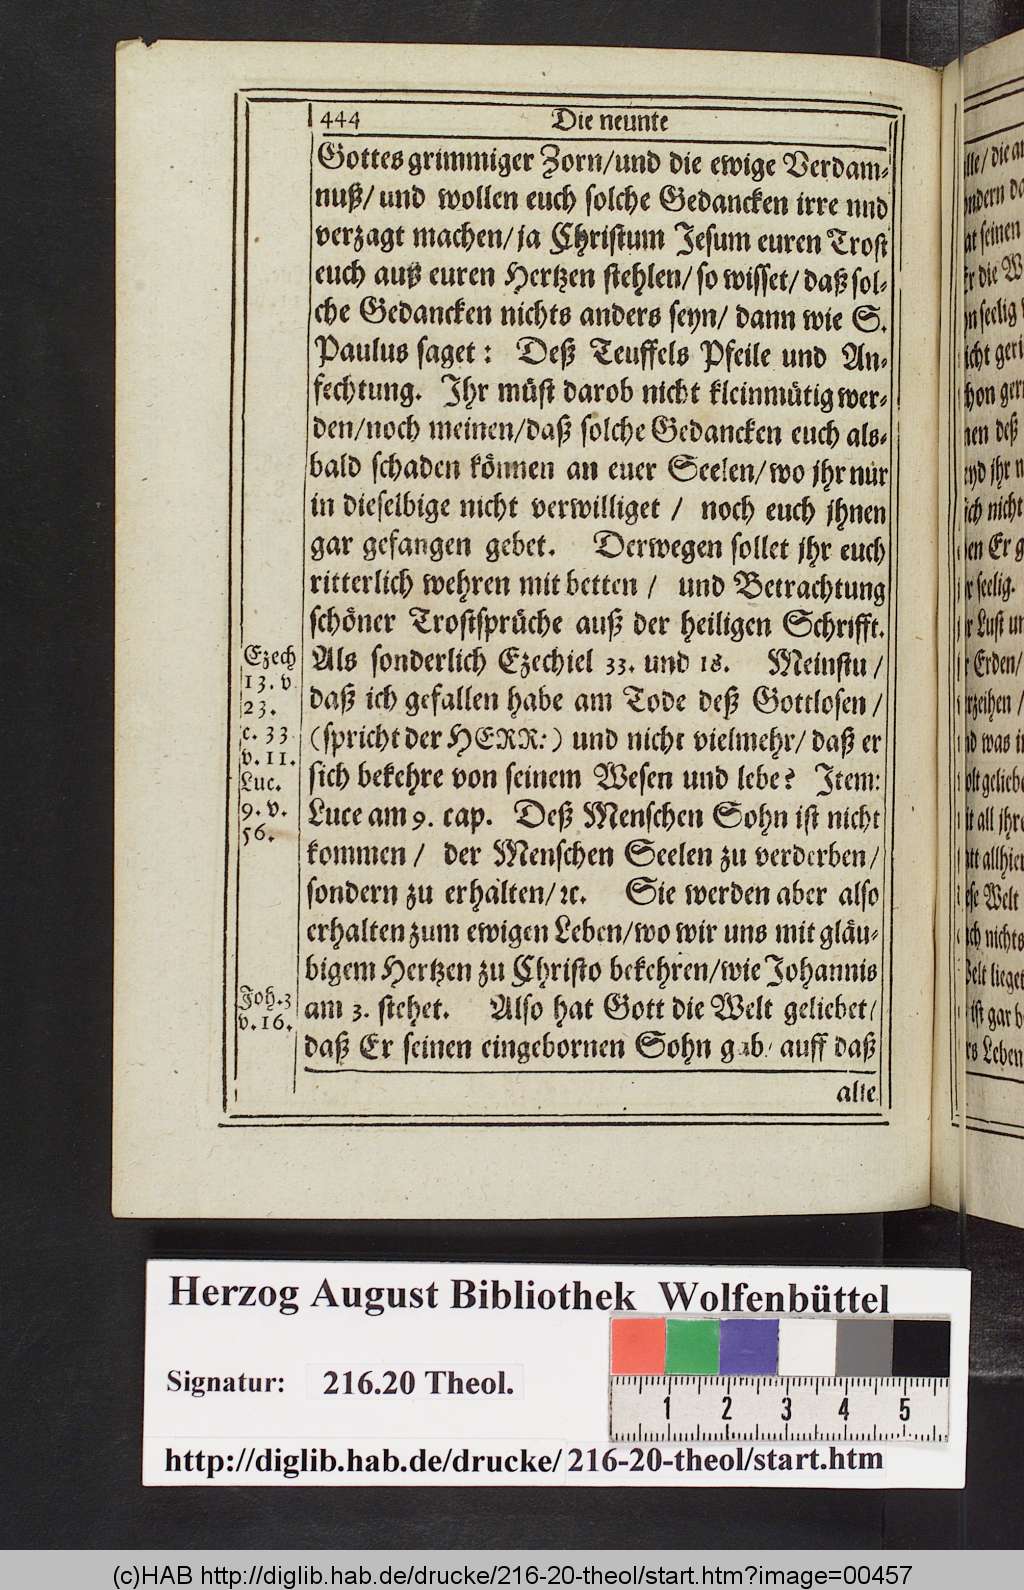 444 Die neunte
Gottes grimmiger Zorn/und die ewige Verdam-
nuß/ und wollen euch solche Gedancken irre und
verzagt machen/ ja Christum Jesum euren Trost
euch auß euren Hertzen stehlen/ so wisset/ daß sol-
che Gedancken nichts anders seyn/ dann wie S.
Paulus saget: Deß Teuffels Pfeile und An-
fechtung. Ihr müst darob nicht kleinmütig wer-
den/noch meinen/daß solche Gedancken euch als-
bald schaden können an euer Seelen/wo jhr nur
in dieselbige nicht verwilliget / noch euch jhnen
gar gefangen gebet. Derwegen sollet jhr euch
ritterlich wehren mit betten / und Betrachtung
schöner Trostsprüche auß der heiligen Schrifft.
Als sonderlich Ezechiel 33. und 18. Meinstu /
daß ich gefallen habe am Tode deß Gottlosen /
(spricht der HERR:) und nicht vielmehr/ daß er
sich bekehre von seinem Wesen und lebe? Item:
Luce am 9. cap. Deß Menschen Sohn ist nicht
kommen / der Menschen Seelen zu verderben /
sondern zu erhalten/ ꝛc. Sie werden aber also
erhalten zum ewigen Leben/wo wir uns mit gläu-
bigem Hertzen zu Christo bekehren/wie Johannis
am 3. stehet. Also hat Gott die Welt geliebet/
daß Er seinen eingebornen Sohn gab/ auff daß
alle
Ezech
13. v
23.
c. 33
v. 11.
Luc.
9. v.
56.
Joh. 3
v. 16.
Herzog August Bibliothek Wolfenbüttel
Signatur: 216.20 Theol.
1 2 3 4 5
http://diglib.hab.de/drucke/ 216-20-theol/start.htm
(c)HAB http://diglib.hab.de/drucke/216-20-theol/start.htm?image=00457